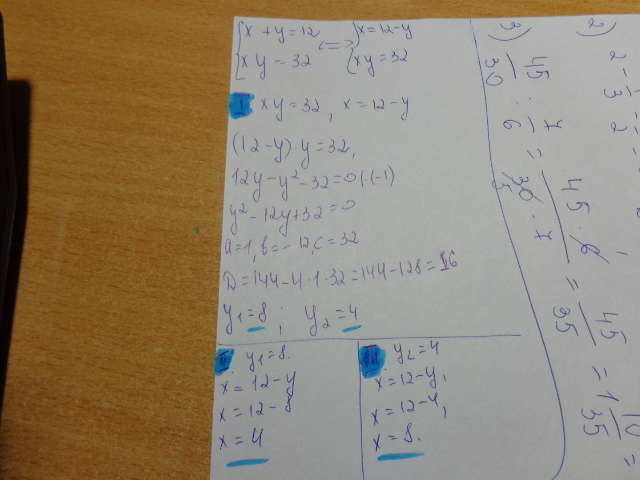 x + y = 12 <=> x = 12 - y
xy = 32 xy = 32
I xy = 32, x = 12 - y
(12 - y) · y = 32,
12y - y² - 32 = 0 | · (-1)
y² - 12y + 32 = 0
a = 1, b = - 12, c = 32
D = 144 - 4 · 1 · 32 = 144 - 128 = 16
y₁ = 8 ; y₂ = 4
II y₁ = 8.
x = 12 - y
x = 12 - 8
x = 4
III y₂ = 4
x = 12 - y,
x = 12 - 4,
x = 8.
2) 2 - 1/3 - 2
3) 45/30 : 7/6 = 45 · 6 / 30 · 7 = 45/35 = 1 10/35 =
5 1